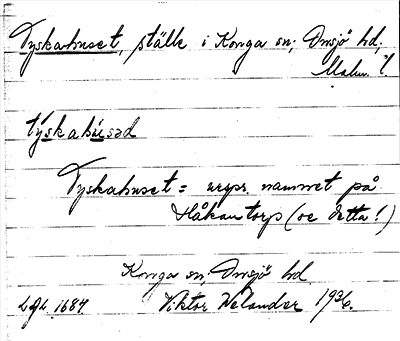 Tyskahuset, ställe i Konga sn; Onsjö hd,
Malm. l
týskahúsəd
Tyskahuset = urspr. namnet på
Håkantorp (se detta!)
Konga sn, Onsjö hd.
LGL. 1687 Viktor Welander 1936.